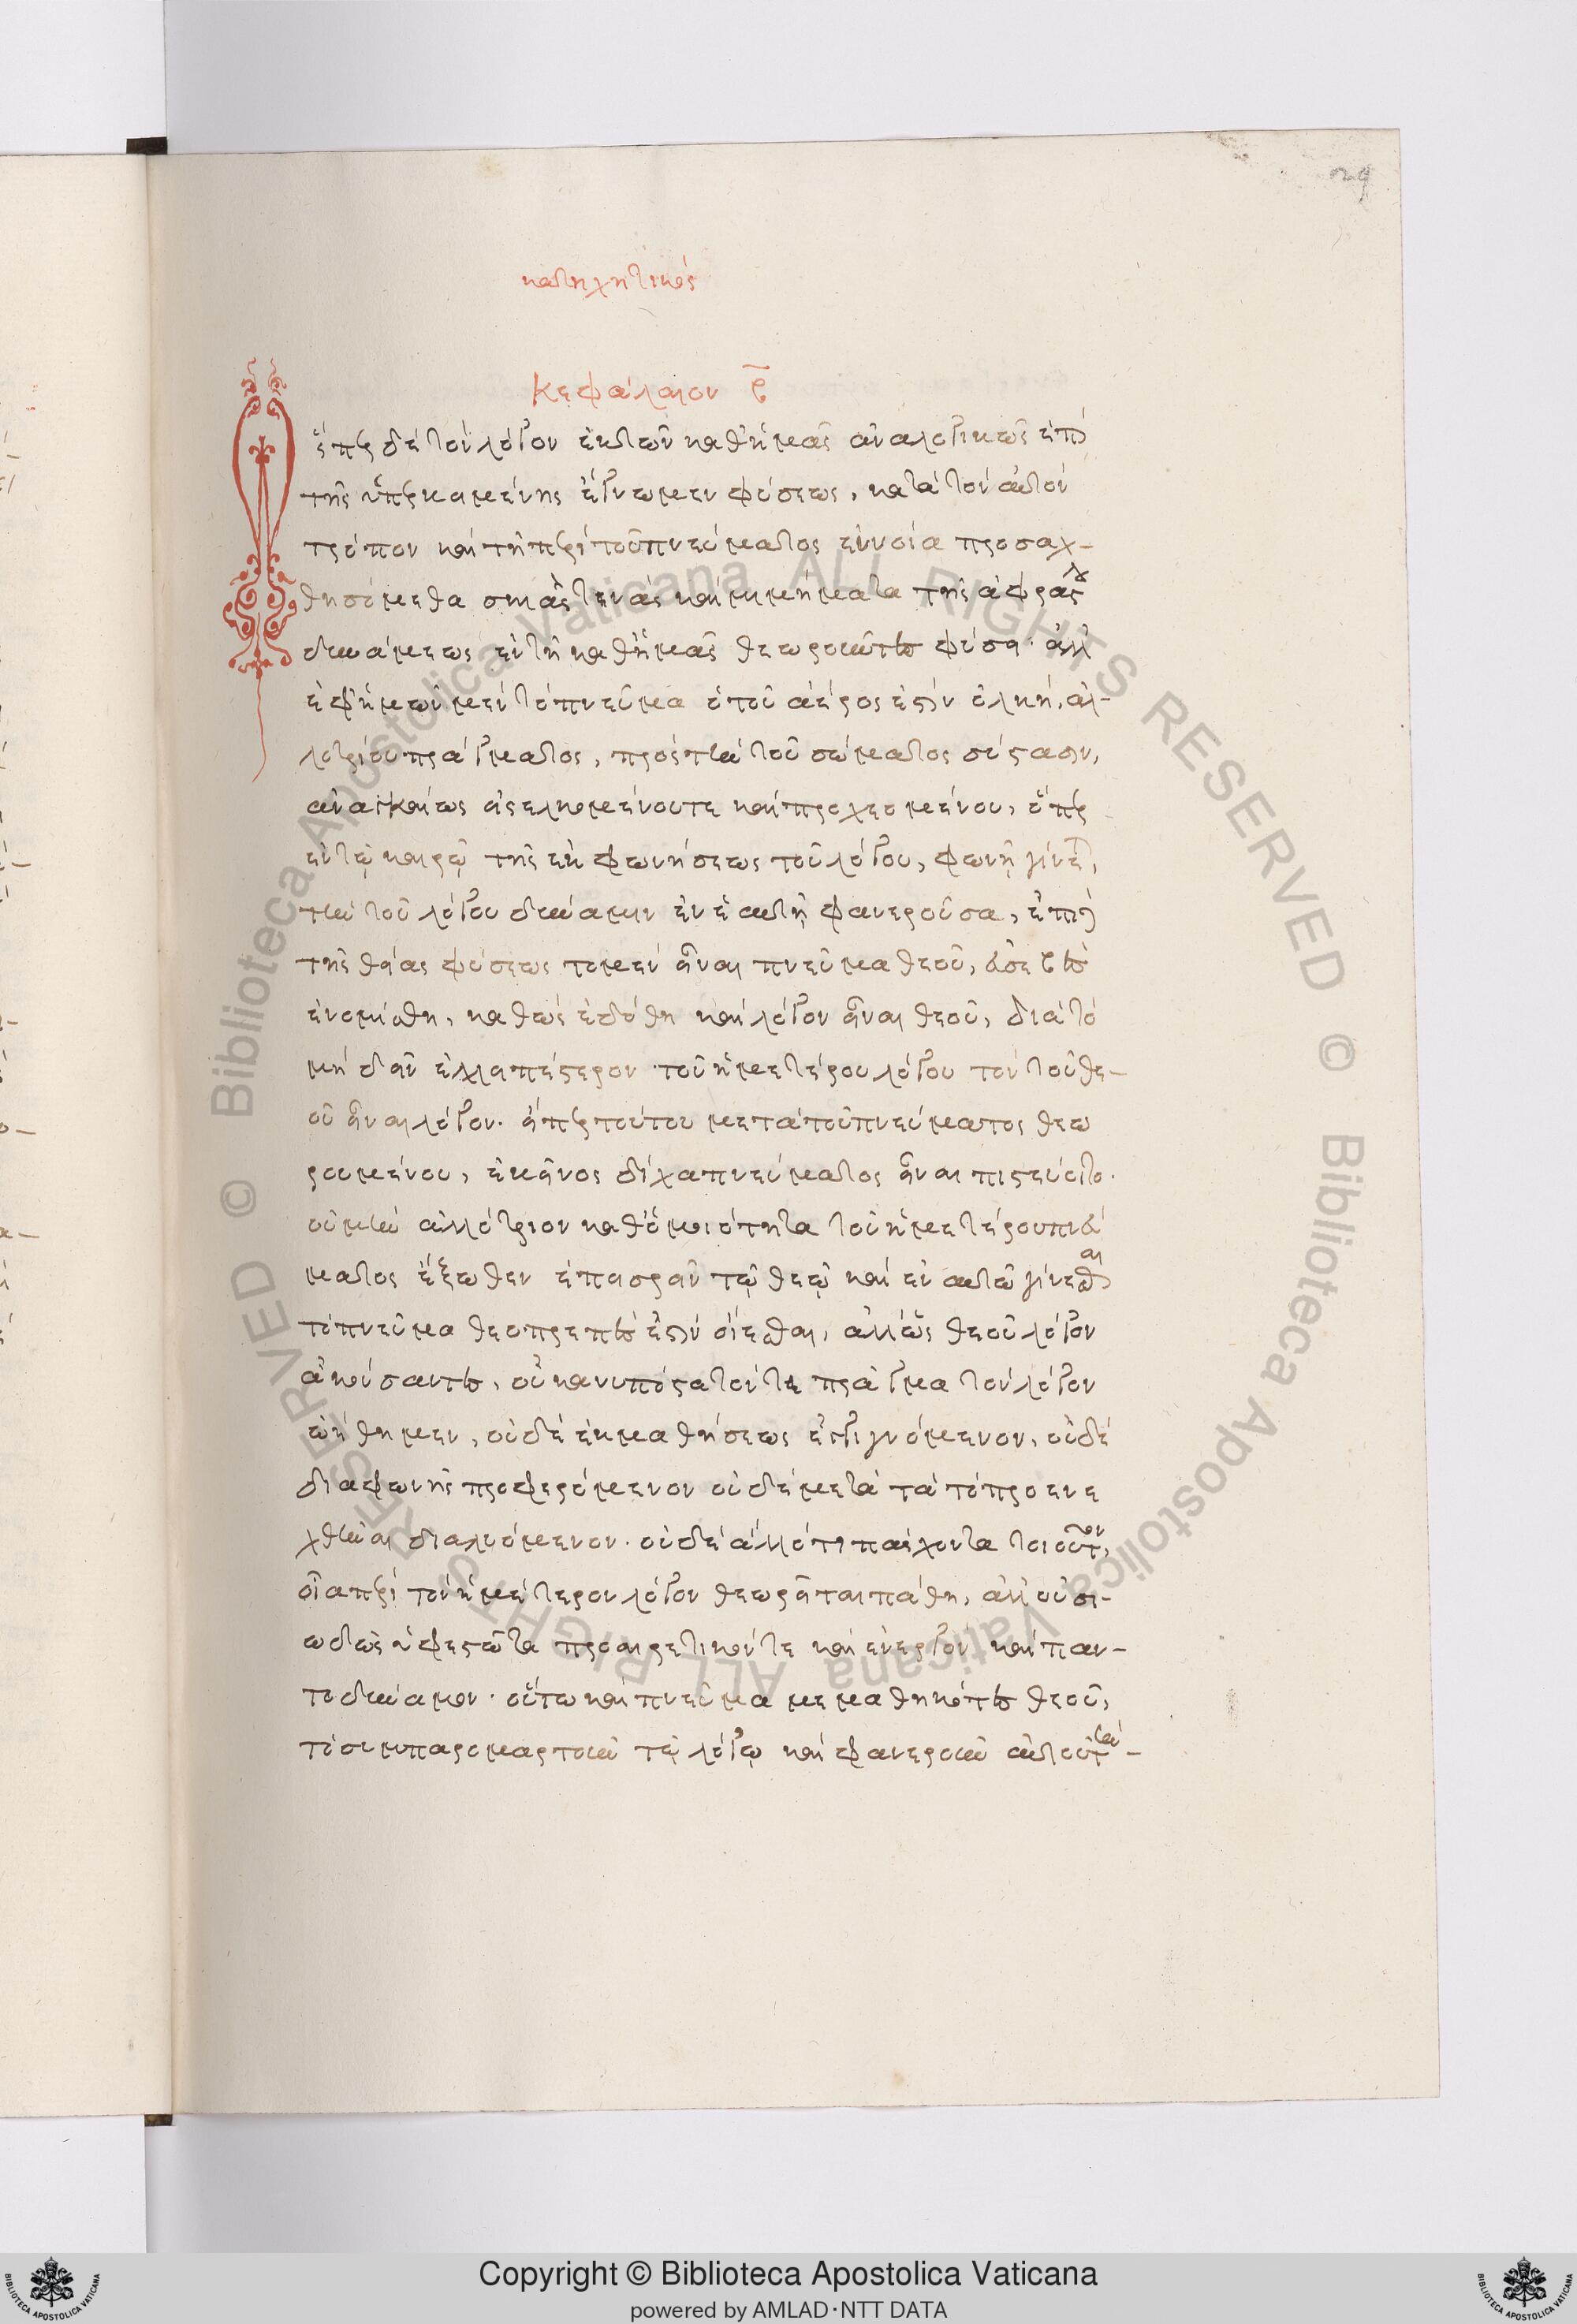 29
κατηχητικός
κεφάλαιον β
ὥσπερ δὲ τὸν λόγον ἐκ τῶν καθ' ἡμᾶς ἀναλογικῶς ἐπὶ
τῆς ὑπερκειμένης ἔγνωμεν φύσεως, κατὰ τὸν αὐτὸν
τρόπον καὶ τῇ περὶ τοῦ πνεύματος ἐννοίᾳ προσαχ-
θησόμεθα σκιάς τινας καὶ μιμήματα τῆς ἀφράστου
δυνάμεως ἐν τῇ καθ' ἡμᾶς θεωροῦντες φύσει. ἀλλ'
ἐφ' ἡμῶν μὲν τὸ πνεῦμα ἡ τοῦ ἀέρος ἐστὶν ὁλκή, ἀλ-
λοτρίου πράγματος, πρὸς τὴν τοῦ σώματος σύστασιν,
ἀναγκαίως εἰσελκομένου τε καὶ προχεομένου, ὅπερ
ἐν τῷ καιρῷ τῆς ἐκφωνήσεως τοῦ λόγου, φωνὴ γίνεται,
τὴν τοῦ λόγου δύναμιν ἐν ἑαυτῇ φανεροῦσα, ἐπὶ δὲ
τῆς θείας φύσεως τὸ μὲν εἶναι πνεῦμα θεοῦ, εὐσεβὲς
ἐνομίσθη, καθὼς ἐδόθη καὶ λόγον εἶναι θεοῦ, διὰ τὸ
μὴ δεῖν ἐλλιπέστερον τοῦ ἡμετέρου λόγου τὸν τοῦ θε-
οῦ εἶναι λόγον. εἴπερ τούτου μετὰ τοῦ πνεύματος θεω
ρουμένου, ἐκεῖνος δίχα πνεύματος εἶναι πιστεύοιτο.
οὐ μὴν ἀλλότριον καθ' ὁμοιότητα τοῦ ἡμετέρου πνεύ
ματος ἔξωθεν ἐπεισρεῖν τῷ θεῷ καὶ ἐν αὐτῷ γίνεσθαι
τὸ πνεῦμα θεοπρεπές ἐστιν οἴεσθαι, ἀλλ' ὡς θεοῦ λόγον
ἀκούσαντες, οὐκ ἀνυπόστατόν τι πρᾶγμα τὸν λόγον
ᾠήθημεν, οὐδὲ ἐκ μαθήσεως ἐπιγινόμενον, οὐδὲ
διὰ φωνῆς προφερόμενον οὐδὲ μετὰ τὰ τὸ προενε
χθῆναι διαλυόμενον. οὐδὲ ἄλλό τι πάσχοντα τοιοῦτον,
οἷα περὶ τὸν ἡμέτερον λόγον θεωρεῖται πάθη, ἀλλ' οὐσι-
ωδῶς ὑφεστῶτα προαιρετικόν τε καὶ ἐνεργὸν καὶ παν-
τοδύναμον. οὕτω καὶ πνεῦμα μεμαθηκότες θεοῦ,
τὸ συμπαρομαρτοῦν τῷ λόγῳ καὶ φανεροῦν αὐτοῦ τὴν-
Copyright © Biblioteca Apostolica Vaticana
powered by AMLAD·NTT DATA